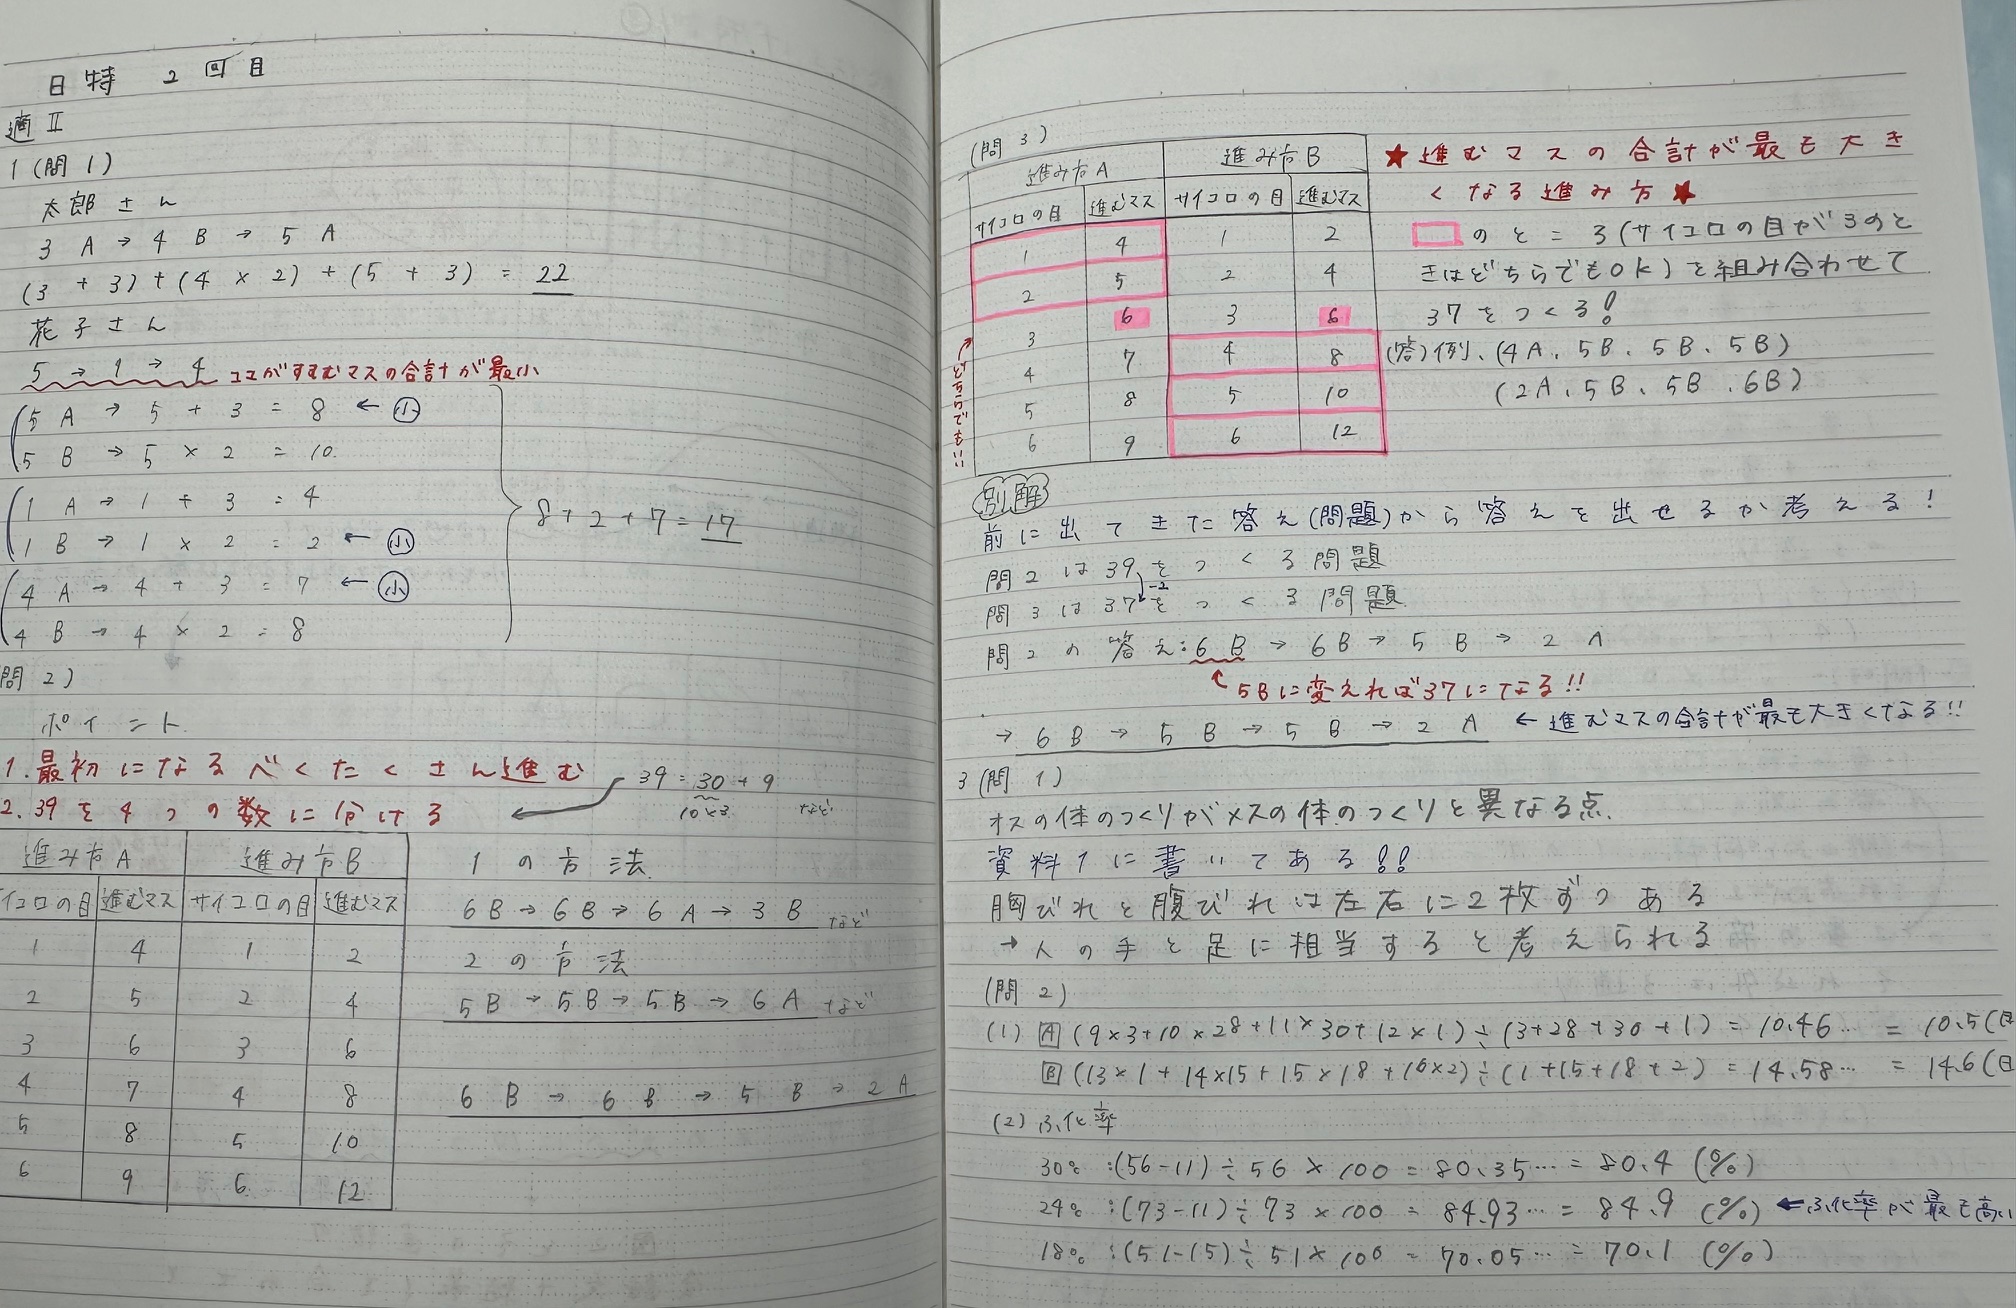 日特 2回目
適Ⅱ
1(問1)
太郎さん
3A→4B→5A
(3+3)+(4×2)+(5+3)=22
花子さん
5→1→4 コマがすすむマスの合計が最小
5A→5+3=8 ←小
5B→5×2=10.
1A→1+3=4
1B→1×2=2 ←小
4A→4+3=7 ←小
4B→4×2=8
8+2+7=17
問2)
ポイント
1.最初になるべくたくさん進む
2.39を4つの数に分ける
39=30+9
10×3 など
進み方A 進み方B
イコロの目 進むマス サイコロの目 進むマス
1 4 1 2
2 5 2 4
3 6 3 6
4 7 4 8
5 8 5 10
6 9 6 12
1の方法
6B→6B→6A→3B など
2の方法
5B→5B→5B→6A など
6B→6B→5B→2A
(問3)
進み方A 進み方B
サイコロの目 進むマス サイコロの目 進むマス
1 4 1 2
2 5 2 4
3 6 3 6
4 7 4 8
5 8 5 10
6 9 6 12
どちらでもいい
★進むマスの合計が最も大き
くなる進み方★
のとこ3(サイコロの目が3のと
きはどちらでもOK)を組み合わせて
37をつくる!
(答)例、(4A、5B、5B、5B)
(2A、5B、5B、6B)
別解
前に出てきた答え(問題)から答えを出せるか考える!
問2は39をつくる問題
-2
問3は37をつくる問題
問2の答え:6B→6B→5B→2A
5Bに変えれば37になる!!
→6B→5B→5B→2A ←進むマスの合計が最も大きくなる!!
3(問1)
オスの体のつくりがメスの体のつくりと異なる点.
資料1に書いてある!!
胸びれと腹びれは左右に2枚ずつある
→人の手と足に相当すると考えられる
(問2)
(1) A (9×3+10×28+11×30+12×1)÷(3+28+30+1)=10.46… =10.5(日
B (13×1+14×15+15×18+16×2)÷(1+15+18+2)=14.58… =14.6(日
(2)ふ化率
30%:(56-11)÷56×100=80.35…=80.4(%)
24%:(73-11)÷73×100=84.93…=84.9(%) ←ふ化率が最も高い
18%:(51-15)÷51×100=70.05…=70.1(%)